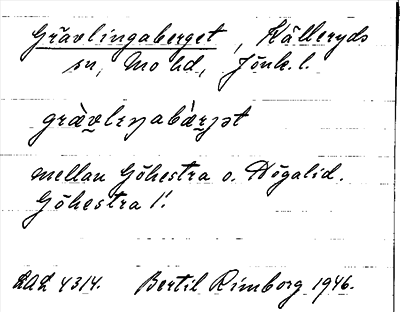 Grävlingaberget, Kålleryds
sn, Mo hd, Jönk. l.
grävlɩŋabærjət
mellan Göhestra o. Högalid.
Göhestra 1!
DAL 4314. Bertil Rimborg 1946.